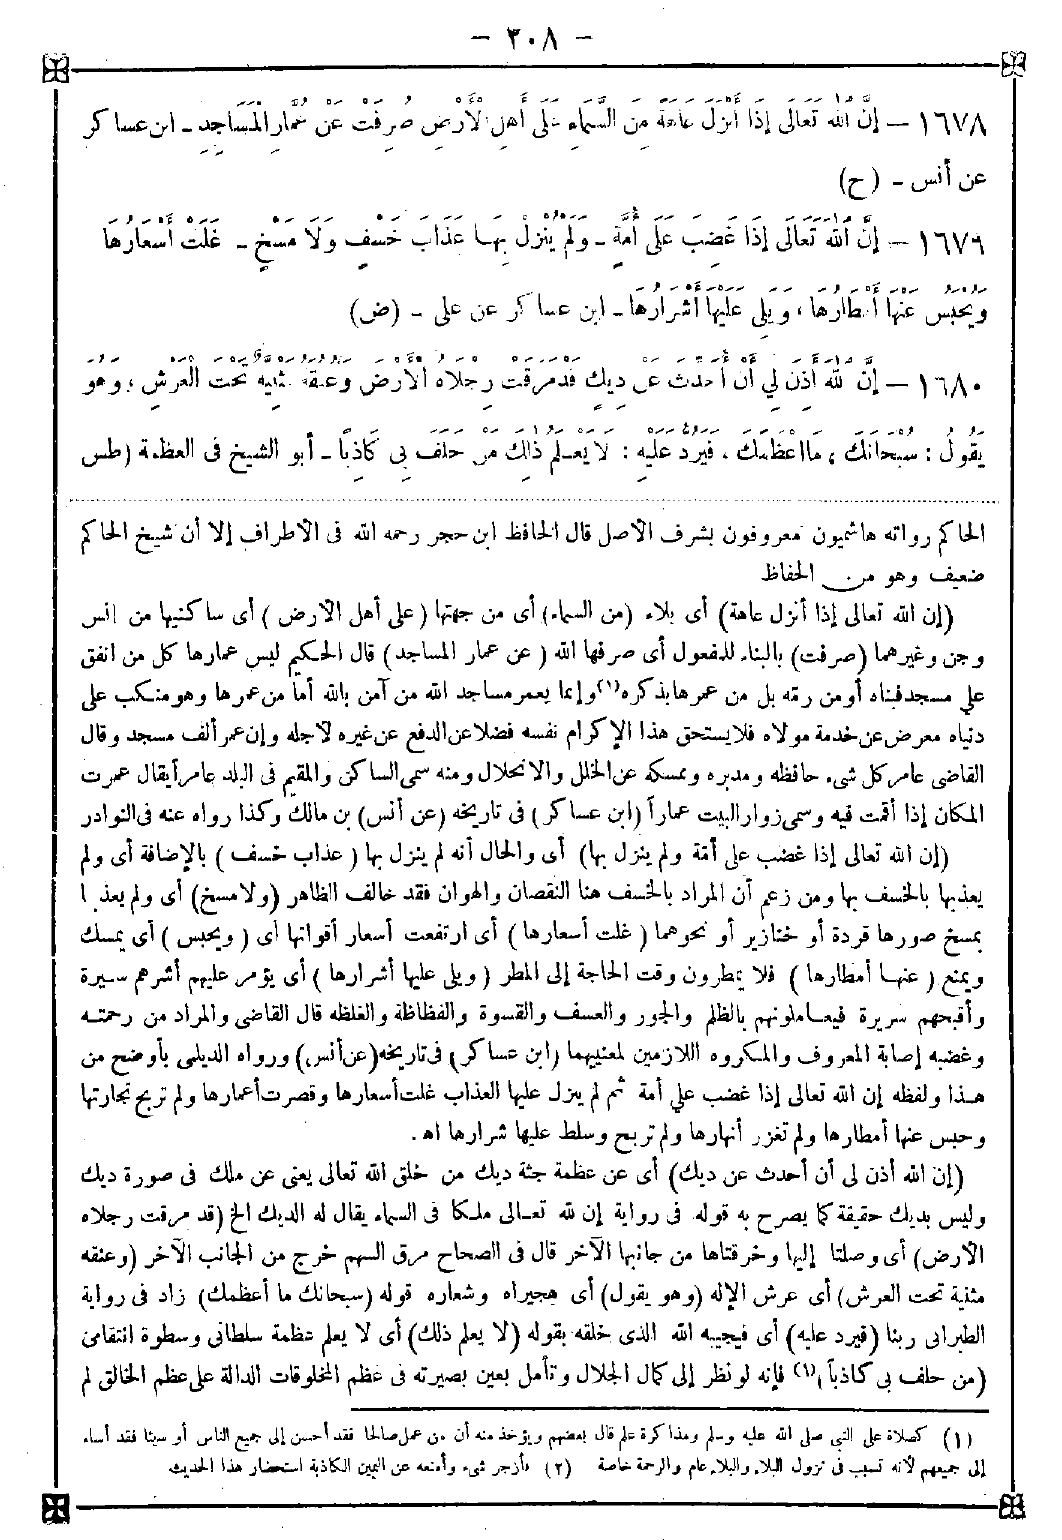 - ٢٠٨ -
١٦٧٨ - إِنَّ اللهَ تَعَالَى إِذَا أَنْزَلَ عَاهَةً مِنَ السَّمَاءِ عَلَى أَهْلِ الْأَرْضِ صُرِفَتْ عَنْ عُمَّارِ الْمَسَاجِدِ - ابن عساكر
عن أنس - (ح)
١٦٧٩ - إِنَّ اللهَ تَعَالَى إِذَا غَضِبَ عَلَى أُمَّةٍ - وَلَمْ يُنْزِلْ بِهَا عَذَابَ خَسْفٍ وَلَا مَسْخٍ - غَلَتْ أَسْعَارُهَا
وَيُحْبَسُ عَنْهَا أَمْطَارُهَا ، وَيَلِي عَلَيْهَا أَشْرَارُهَا - ابن عساكر عن على - (ض)
١٦٨٠ - إِنَّ اللهَ أَذِنَ لِي أَنْ أُحَدِّثَ عَنْ دِيكٍ قَدْ مَرَقَتْ رِجْلَاهُ الْأَرْضَ وَعُنُقُهُ مُثْنِيَةٌ تَحْتَ الْعَرْشِ ، وَهُوَ
يَقُولُ : سُبْحَانَكَ ، مَا أَعْظَمَكَ ، فَيَرُدُّ عَلَيْهِ : لَا يَعْلَمُ ذَلِكَ مَنْ حَلَفَ بِي كَاذِبًا - أبو الشيخ فى العظمة (طس
الحاكم رواته هاشميون معروفون بشرف الأصل قال الحافظ ابن حجر رحمه الله فى الأطراف إلا أن شيخ الحاكم
ضعيف وهو من الحفاظ
(إن الله تعالى إذا أنزل عاهة) أى بلاء (من السماء) أى من جهتها (على أهل الأرض) أى ساكنيها من انس
وجن وغيرهما (صرفت) بالبناء للمفعول أى صرفها الله (عن عمار المساجد) قال الحكيم ليس عمارها كل من انفق
على مسجد فبناه أو من رمه بل من عمرها بذكره (١) وإنما يعمر مساجد الله من آمن بالله أما من عمرها وهو منكب على
دنياه معرض عن خدمة مولاه فلا يستحق هذا الإكرام نفسه فضلا عن الدفع عن غيره لأجله وإن عمر ألف مسجد وقال
القاضى عامر كل شىء حافظه ومدبره وممسكه عن الخلل والانحلال ومنه سمى الساكن والمقيم فى البلد عامر أيقال عمرت
المكان إذا أقمت فيه وسمى زوار البيت عماراً (ابن عساكر) فى تاريخه (عن أنس) بن مالك وكذا رواه عنه فى النوادر
(إن الله تعالى إذا غضب على أمة ولم ينزل بها) أى والحال أنه لم ينزل بها (عذاب خسف) بالإضافة أى ولم
يعذبها بالخسف بها ومن زعم أن المراد بالخسف هنا النقصان والهوان فقد خالف الظاهر (ولا مسخ) أى ولم يعذبها
بمسخ صورها قردة أو خنازير أو نحوهما (غلت أسعارها) أى ارتفعت أسعار أقواتها أى (ويحبس) أى يمسك
ويمنع (عنها أمطارها) فلا يمطرون وقت الحاجة إلى المطر (ويلى عليها أشرارها) أى يؤمر عليهم أشرهم سيرة
وأقبحهم سريرة فيعاملونهم بالظلم والجور والعسف والقسوة والفظاظة والغلظه قال القاضى والمراد من رحمته
وغضبه إصابة المعروف والمكروه اللازمين لمعنييهما (ابن عساكر) فى تاريخه (عن أنس) ورواه الديلمى بأوضح من
هذا ولفظه إن الله تعالى إذا غضب على أمة ثم لم ينزل عليها العذاب غلت أسعارها وقصرت أعمارها ولم تربح تجارتها
وحبس عنها أمطارها ولم تغزر أنهارها ولم تربح وسلط عليها شرارها اه.
(إن الله أذن لى أن أحدث عن ديك) أى عن عظمة جثة ديك من خلق الله تعالى يعنى عن ملك فى صورة ديك
وليس بديك حقيقة كما يصرح به قوله فى رواية إن لله تعالى ملكا فى السماء يقال له الديك الخ (قد مرقت رجلاه
الأرض) أى وصلتا إليها وخرقتاها من جانبها الآخر قال فى الصحاح مرق السهم خرج من الجانب الآخر (وعنقه
مثنية تحت العرش) أى عرش الإله (وهو يقول) أى هجيراه وشعاره قوله (سبحانك ما أعظمك) زاد فى رواية
الطبرانى ربنا (فيرد عليه) أى فيجيبه الله الذى خلقه بقوله (لا يعلم ذلك) أى لا يعلم عظمة سلطانى وسطوة انتقامى
(من حلف بى كاذباً) (١) فإنه لو نظر إلى كمال الجلال وتأمل بعين بصيرته فى عظم المخلوقات الدالة على عظم الخالق لم
(١) كصلاة على النبي صلى الله عليه وسلم ومذاكرة علم قال بعضهم ويؤخذ منه أن من عمل صالحا فقد أحسن إلى جميع الناس أو سيئا فقد أساء
إلى جميعهم لأنه تسبب فى نزول البلاء والبلاء عام والرحمة خاصة (٢) فأزجر شىء وأمنعه عن اليمين الكاذبة استحضار هذا الحديث